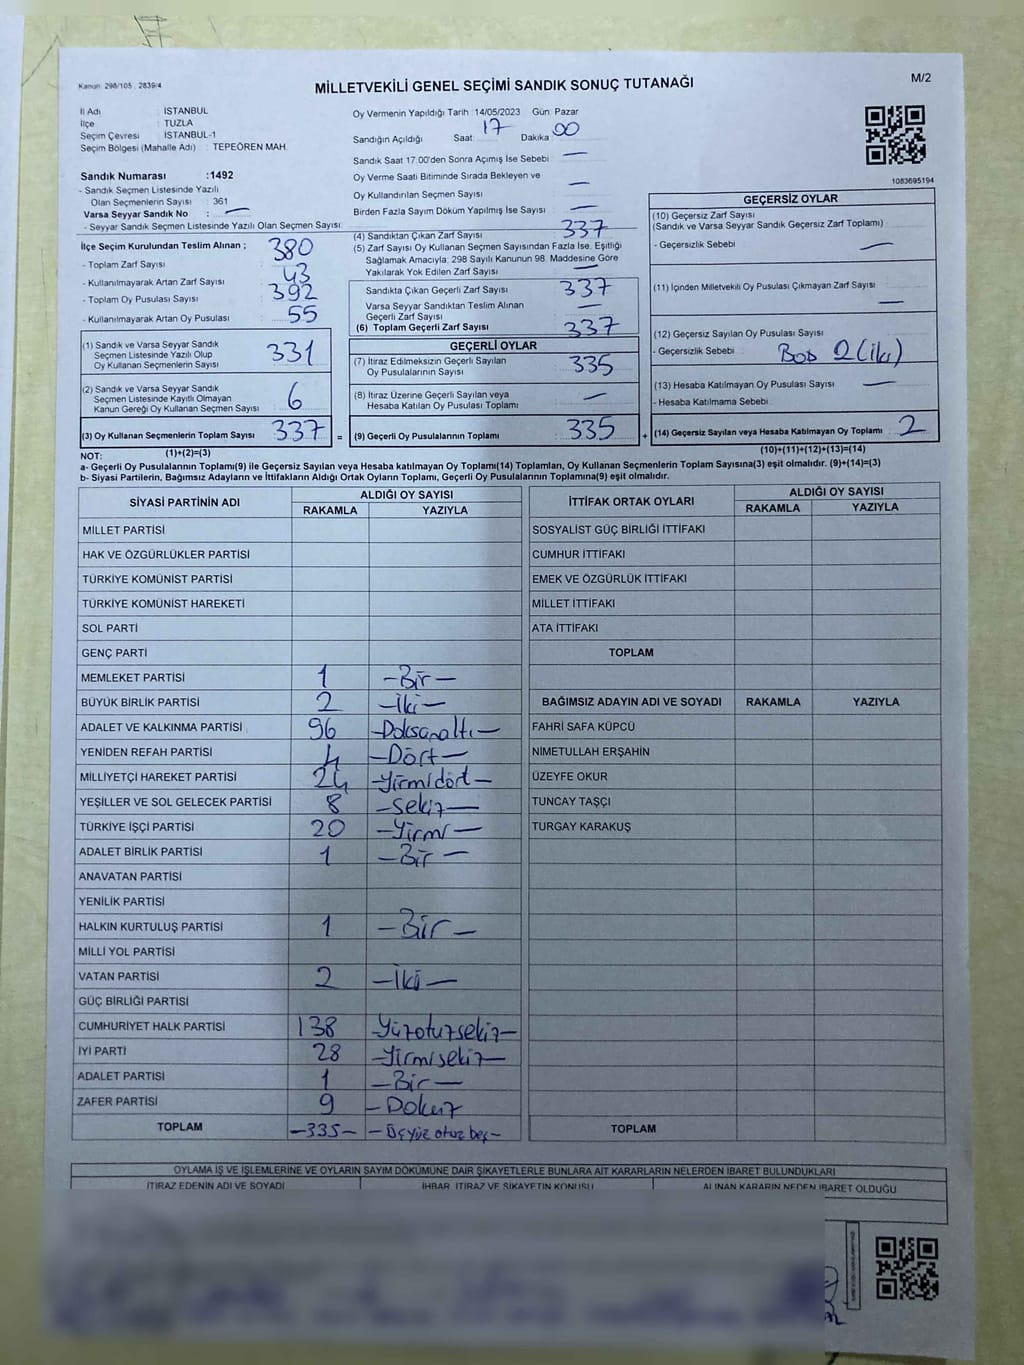 Kanun: 298/105 , 2839/4
MİLLETVEKİLİ GENEL SEÇİMİ SANDIK SONUÇ TUTANAĞI
M/2
İl Adı : İSTANBUL
İlçe : TUZLA
Seçim Çevresi : İSTANBUL-1
Seçim Bölgesi (Mahalle Adı) : TEPEÖREN MAH.
Oy Vermenin Yapıldığı Tarih :14/05/2023 Gün: Pazar
Sandığın Açıldığı Saat: 17 Dakika: 00
Sandık Saat 17:00'den Sonra Açımış İse Sebebi : —
Oy Verme Saati Bitiminde Sırada Bekleyen ve
Oy Kullandırılan Seçmen Sayısı : —
Birden Fazla Sayım Döküm Yapılmış İse Sayısı : —
1083695194
Sandık Numarası :1492
- Sandık Seçmen Listesinde Yazılı
Olan Seçmenlerin Sayısı : 361
Varsa Seyyar Sandık No : —
- Seyyar Sandık Seçmen Listesinde Yazılı Olan Seçmen Sayısı:
İlçe Seçim Kurulundan Teslim Alınan ;
- Toplam Zarf Sayısı : 380
- Kullanılmayarak Artan Zarf Sayısı : 43
- Toplam Oy Pusulası Sayısı : 392
- Kullanılmayarak Artan Oy Pusulası : 55
(1) Sandık ve Varsa Seyyar Sandık
Seçmen Listesinde Yazılı Olup
Oy Kullanan Seçmenlerin Sayısı : 331
(2) Sandık ve Varsa Seyyar Sandık
Seçmen Listesinde Kayıtlı Olmayan
Kanun Gereği Oy Kullanan Seçmen Sayısı : 6
(3) Oy Kullanan Seçmenlerin Toplam Sayısı : 337 =
(4) Sandıktan Çıkan Zarf Sayısı : 337
(5) Zarf Sayısı Oy Kullanan Seçmen Sayısından Fazla İse, Eşitliği
Sağlamak Amacıyla; 298 Sayılı Kanunun 98. Maddesine Göre
Yakılarak Yok Edilen Zarf Sayısı : —
Sandıkta Çıkan Geçerli Zarf Sayısı : 337
Varsa Seyyar Sandıktan Teslim Alınan
Geçerli Zarf Sayısı : —
(6) Toplam Geçerli Zarf Sayısı : 337
GEÇERLİ OYLAR
(7) İtiraz Edilmeksizin Geçerli Sayılan
Oy Pusulalarının Sayısı : 335
(8) İtiraz Üzerine Geçerli Sayılan veya
Hesaba Katılan Oy Pusulası Toplamı : —
(9) Geçerli Oy Pusulalarının Toplamı : 335 +
GEÇERSİZ OYLAR
(10) Geçersiz Zarf Sayısı
(Sandık ve Varsa Seyyar Sandık Geçersiz Zarf Toplamı) :
- Geçersizlik Sebebi : —
(11) İçinden Milletvekili Oy Pusulası Çıkmayan Zarf Sayısı: —
(12) Geçersiz Sayılan Oy Pusulası Sayısı :
- Geçersizlik Sebebi : Boş 2 (iki)
(13) Hesaba Katılmayan Oy Pusulası Sayısı : —
- Hesaba Katılmama Sebebi :
(14) Geçersiz Sayılan veya Hesaba Katılmayan Oy Toplamı: 2
NOT: (1)+(2)=(3) (10)+(11)+(12)+(13)=(14)
a- Geçerli Oy Pusulalarının Toplamı(9) ile Geçersiz Sayılan veya Hesaba katılmayan Oy Toplamı(14) Toplamları, Oy Kullanan Seçmenlerin Toplam Sayısına(3) eşit olmalıdır. (9)+(14)=(3)
b- Siyasi Partilerin, Bağımsız Adayların ve İttifakların Aldığı Ortak Oyların Toplamı, Geçerli Oy Pusulalarının Toplamına(9) eşit olmalıdır.
SİYASİ PARTİNİN ADI ALDIĞI OY SAYISI
RAKAMLA YAZIYLA
MİLLET PARTİSİ
HAK VE ÖZGÜRLÜKLER PARTİSİ
TÜRKİYE KOMÜNİST PARTİSİ
TÜRKİYE KOMÜNİST HAREKETİ
SOL PARTİ
GENÇ PARTİ
MEMLEKET PARTİSİ 1 –Bir–
BÜYÜK BİRLİK PARTİSİ 2 –İki–
ADALET VE KALKINMA PARTİSİ 96 –Doksanaltı–
YENİDEN REFAH PARTİSİ 4 –Dört–
MİLLİYETÇİ HAREKET PARTİSİ 24 –Yirmidört–
YEŞİLLER VE SOL GELECEK PARTİSİ 8 –Sekiz–
TÜRKİYE İŞÇİ PARTİSİ 20 –Yirmi–
ADALET BİRLİK PARTİSİ 1 –Bir–
ANAVATAN PARTİSİ
YENİLİK PARTİSİ
HALKIN KURTULUŞ PARTİSİ 1 –Bir–
MİLLİ YOL PARTİSİ
VATAN PARTİSİ 2 –İki–
GÜÇ BİRLİĞİ PARTİSİ
CUMHURİYET HALK PARTİSİ 138 Yüzotuzsekiz–
İYİ PARTİ 28 –Yirmisekiz–
ADALET PARTİSİ 1 –Bir–
ZAFER PARTİSİ 9 –Dokuz
TOPLAM –335– –Üçyüz otuz beş–
İTTİFAK ORTAK OYLARI ALDIĞI OY SAYISI
RAKAMLA YAZIYLA
SOSYALİST GÜÇ BİRLİĞİ İTTİFAKI
CUMHUR İTTİFAKI
EMEK VE ÖZGÜRLÜK İTTİFAKI
MİLLET İTTİFAKI
ATA İTTİFAKI
TOPLAM
BAĞIMSIZ ADAYIN ADI VE SOYADI RAKAMLA YAZIYLA
FAHRİ SAFA KÜPCÜ
NİMETULLAH ERŞAHİN
ÜZEYFE OKUR
TUNCAY TAŞÇI
TURGAY KARAKUŞ
TOPLAM
OYLAMA İŞ VE İŞLEMLERİNE VE OYLARIN SAYIM DÖKÜMÜNE DAİR ŞİKAYETLERLE BUNLARA AİT KARARLARIN NELERDEN İBARET BULUNDUKLARI
İTİRAZ EDENİN ADI VE SOYADI İHBAR, İTİRAZ VE ŞİKAYETİN KONUSU ALINAN KARARIN NEDEN İBARET OLDUĞU